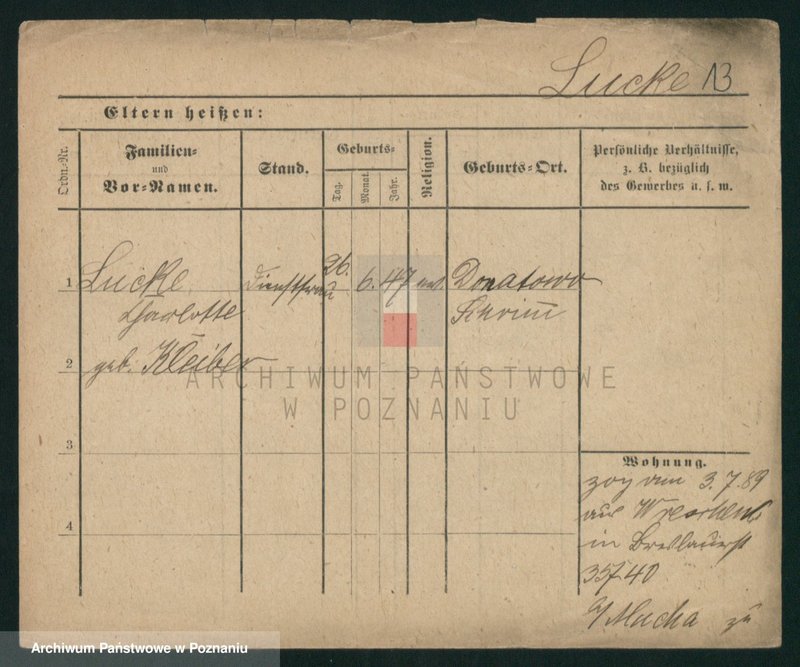 Lucke 13
Eltern heißen:
Ordn.-Nr.
Familien-
und
Vor-Namen.
Stand.
Geburts-
Tag.
Monat.
Jahr.
Religion.
Geburts-Ort.
Persönliche Verhältnisse,
z. B. bezüglich
des Gewerbes u. s. w.
1 Lucke Dienstfrau 26. 6. 47 ev. Donatowo
Charlotte Schrimm
2 geb. Kleiber
ARCHIWUM PAŃSTWOWE
W POZNANIU
3
Wohnung.
zog am 3.7.89
aus Wreschen
4
in Breslauerst
35/40
b/ Macha zu
Archiwum Państwowe w Poznaniu